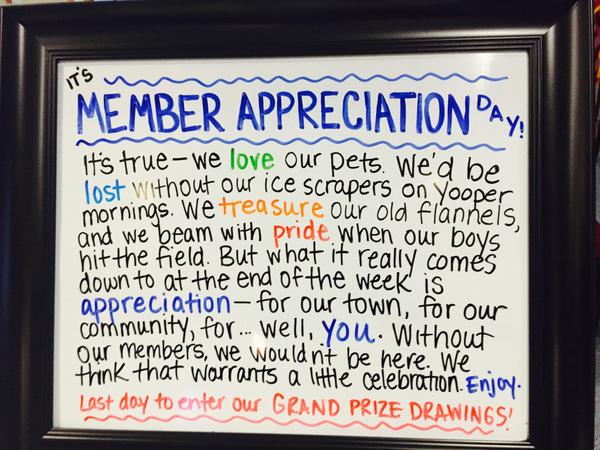 IT'S
MEMBER APPRECIATION DAY!
It's true – we love our pets. We'd be
lost without our ice scrapers on Yooper
mornings. We treasure our old flannels,
and we beam with pride when our boys
hit the field. But what it really comes
down to at the end of the week is
appreciation – for our town, for our
community, for... well, you. Without
our members, we wouldn't be here. We
think that warrants a little celebration. Enjoy.
Last day to enter our GRAND PRIZE DRAWINGS!